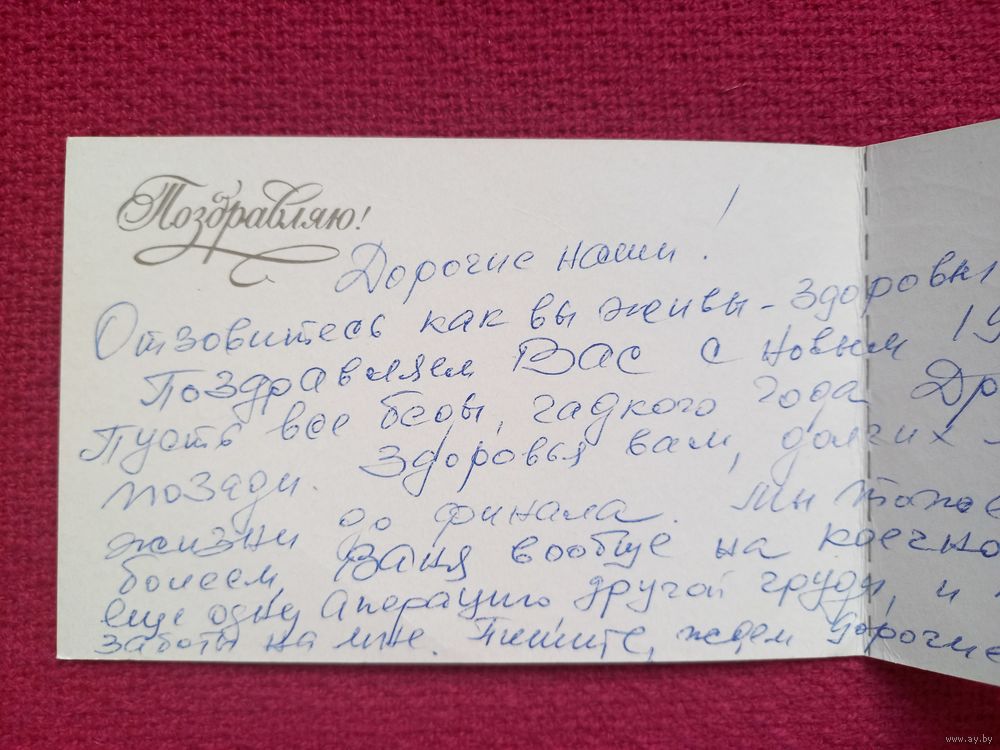 Поздравляю!
Дорогие наши!
Отзовитесь как вы живы-здоровы
Поздравляем Вас с новым 19
Пусть все беды, гадкого года Др
позади. Здоровья вам, долгих
жизни до финала. Мы тоже
болеем, Ваня вообще на коечно
еще одну Аперацию другой груди, и
заботы на мне. Пишите, ждем дорогие
www.ay.by